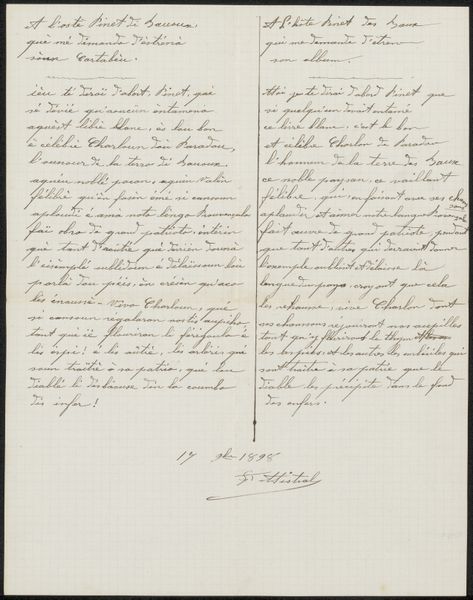 A l'oste Pinet di Baucoux
que mé demando d'estrena
soun Cartabèu.
iéu te dirai d'abord, Pinet, qué
sé dévié qu'aucun entamena
aquest libre blanc, es lou bon
é célèbre Charloun dóu Paradou,
l'ounour de la terro di Baucoux
aquéu noble pacan, aquéu valen
félibre qu'en fasèn émé si cansoun
aplaudi é ama nosto lengo Prouvençalo
faû obro de grand patrioto, entérin
qué tant d'autre qué
l'éisèmple
parla dou péis, en crésèn qu'aco
les enausse. Vivo Charloun, qué
si cansoun regalaran nostis
tant qué
lis erpié! é lis autre, les arlèri qué
soun traitre à sa patrio, qué lou
diable li din la coumbo
dis infer!
A l'hôte Pinet des Baux
qui me demande d'étrenner
son album.
Moi je te dirai d'abord Pinet que
si quelqu'un devait entamer
ce livre blanc, c'est le bon
et célèbre Charlon du Paradou
l'honneur de la terre des Baux
ce noble paysan, ce vaillant
félibre, qui en faisant avec ses chansons
aplaudir et aimer notre langue Provençal
fait œuvre de grand patriote, pendant
que tant d'autres qui devraient donner
l'exemple oublient et délaisse là
langue du pays, croyant que cela
les rehausse, vive Charlon dont
ses chansons réjouiront nos
tant qu'y fleuriront le thym
les et les autres les imbéciles qui
sont traitre à sa patrie que le
diable les précipite dans le fond
des enfers.
17 1898
F. Mistral